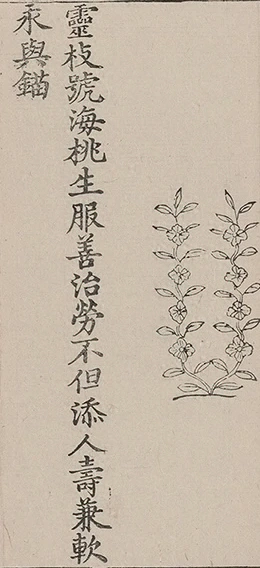 靈枝號海桃生服善治勞不但添人壽兼軟
永與錨